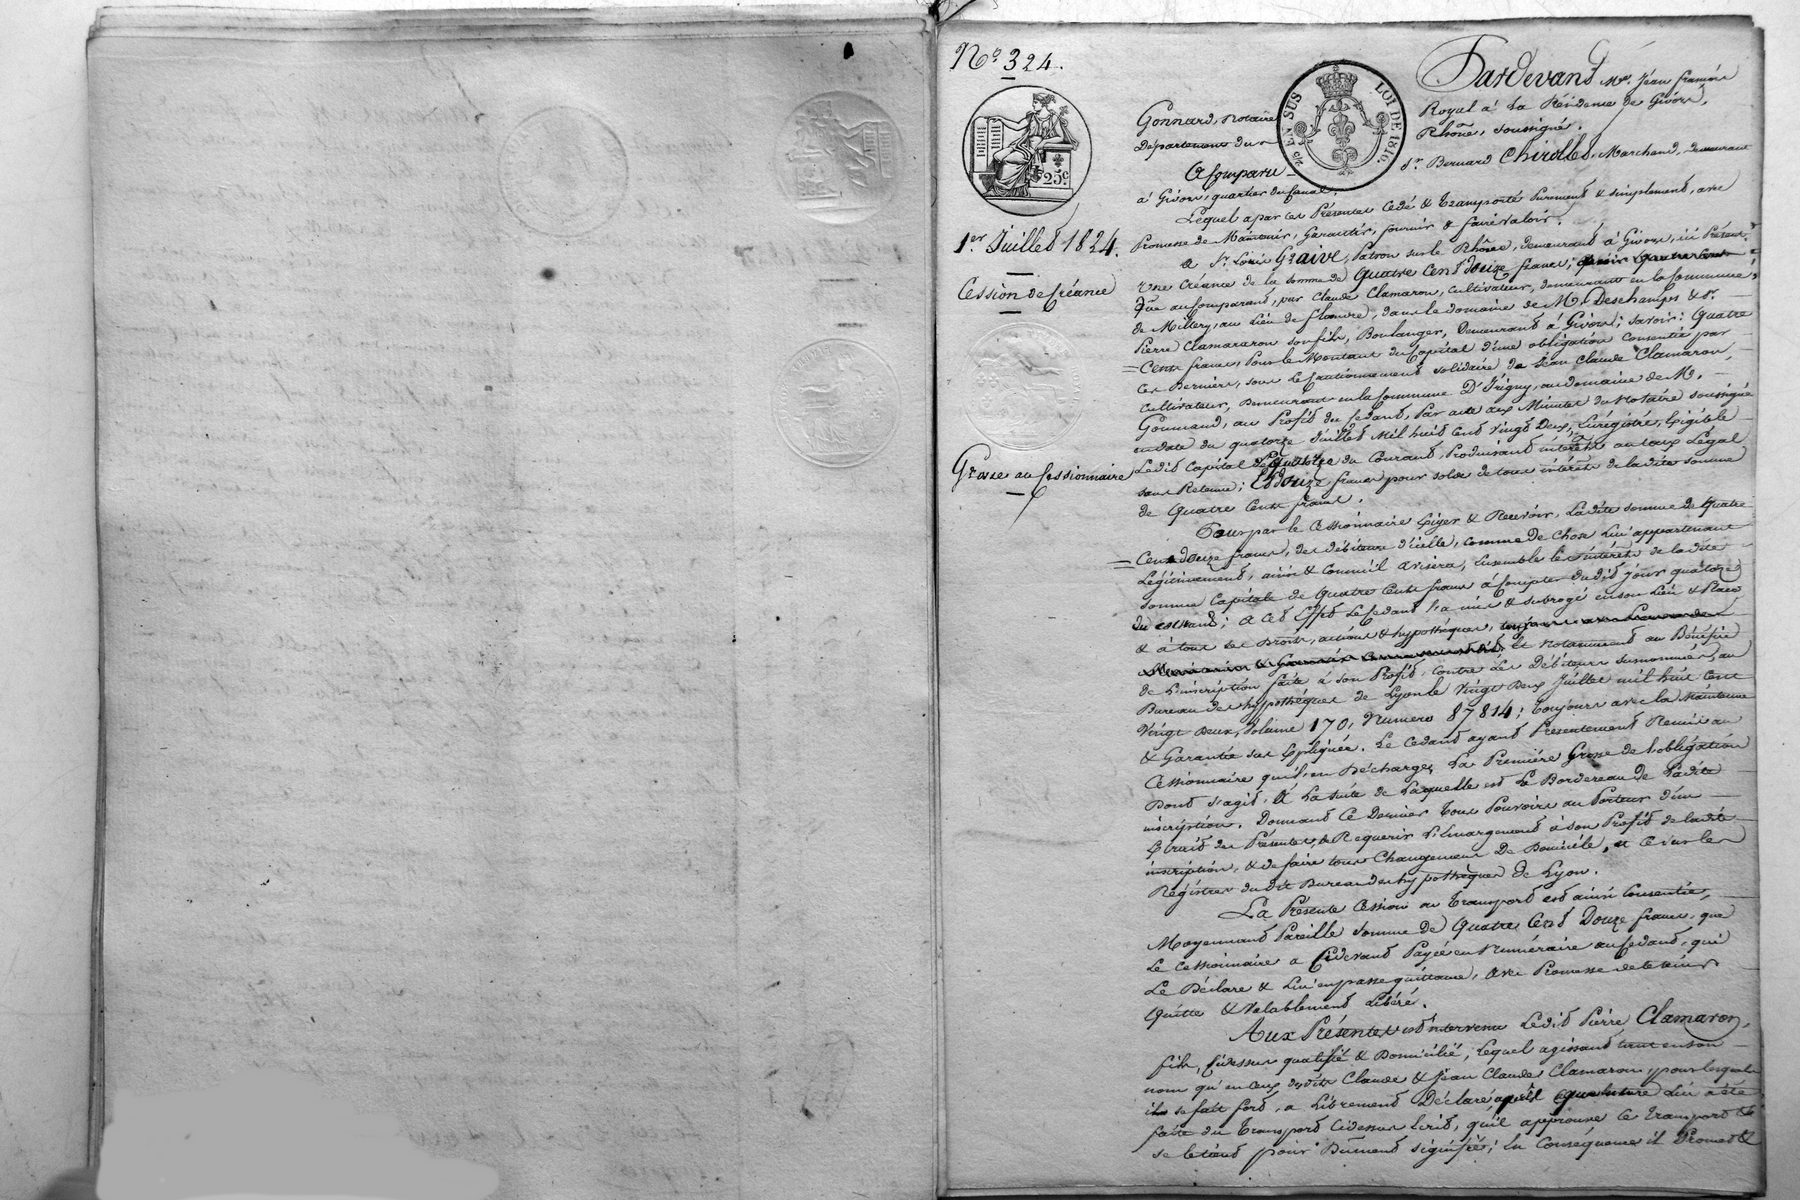 N.° 324.
Pardevant M.e Jean françois
Gonnard, Notaire Royal à la Résidence de Givors,
Département du Rhône, soussigné.
EN SUS
LOI DE 1816.
25c.
A Comparu
S.r Bernard Chirollet, Marchand, demeurant
à Givors, quartier du Canal.
1.er Juillet 1824.
Cession de Créance
Grosse au Cessionnaire
Lequel a par ces Présentes Cédé & Transporté Purement & simplement, avec
Promesse de Maintenir, Garantir, fournir & faire valoir,
A S.r Louis Graive, Patron sur le Rhône, demeurant à Givors, ici Présent,
Une Créance de la somme de Quatre Cent douze francs,
Due au Comparant, par Claude Clamaron, Cultivateur, demeurant en la Commune
de Millery, au Lieu de, dans le domaine de M. Deschamps & S.r
Pierre Clamararon son fils, Boulanger, Demeurant à Givors; savoir: Quatre
Cents francs, Pour le Montant du Capital d'une obligation Consentie par
Ces Derniers, sous le Cautionnement solidaire de Jean Claude Clamaron,
Cultivateur, Demeurant en la Commune D'Irigny, au domaine de M.
Gounand, au Profit du Cédant, Par acte aux Minutes du Notaire soussigné
en date du quatorze Juillet Mil huit Cent Vingt Deux, Enrégistré, Exigible
Ledit Capital Le quatorze du Courant, Produisant intérêts au taux Légal
sans Retenue; Et douze francs pour solde de tous intérêts de ladite somme
de Quatre Cents francs.
Pour par le Cessionnaire Exiger & Recevoir Ladite somme de Quatre
Cent douze francs, des débiteurs d'icelle, Comme de Chose Lui appartenant
Légitimement, ainsi & Comme il avisera, Ensemble les intérêts de ladite
somme Capitale de Quatre Cents francs à Compter dudit jour quatorze
du courant; A Cet Effet Le Cédant l'a mis & subrogé en son Lieu & Place
& à tous ses Droits, actions & hypothèques, Et Notamment au Bénéfice
de L'inscription faite à son Profit, Contre Les Débiteurs surnommés, au
Bureau des hypothèques de Lyon le Vingt Deux Juillet mil huit Cent
Vingt Deux, Volume 170, Numero 87814; Toujours avec la Maintenue
& Garantie sus Expliquée. Le Cédant ayant Présentement Remis au
Cessionnaire qui l'en Décharge, La Première Grosse de l'obligation
Dont s'agit, à La suite de Laquelle est Le Bordereau de Ladite
inscription. Donnant Ce Dernier Tous Pouvoirs au Porteur d'un
Extrait des Présentes, de Requerir l'Emargement à son Profit de ladite
inscription, & de faire tous Changemens De Domicile, & Ce sur les
Régistres dudit Bureau des hypothèques de Lyon.
La Présente Cession ou Transport est ainsi Consentie,
Moyennant Pareille Somme de Quatre Cent Douze francs, que
Le Cessionnaire a Cidevant Payée en Numéraire au Cédant, qui
Le Déclare & Lui en passe quittance, Avec Promesse de le tenir
Quitte & Valablement Libéré.
Aux Présentes est intervenu Ledit Pierre Clamaron,
fils, Cidessus qualifié & Domicilié, Lequel agissant tant en son
nom qu'en Ceux desdits Claude & Jean Claude Clamaron, pour lesquels
il se fait fort, a Librement Déclaré après que lecture Lui a été
faite du Transport Cidessus Ecrit, qu'il approuve Ce Transport &
se le tient pour Dûment signifié; En Conséquence il Promet &